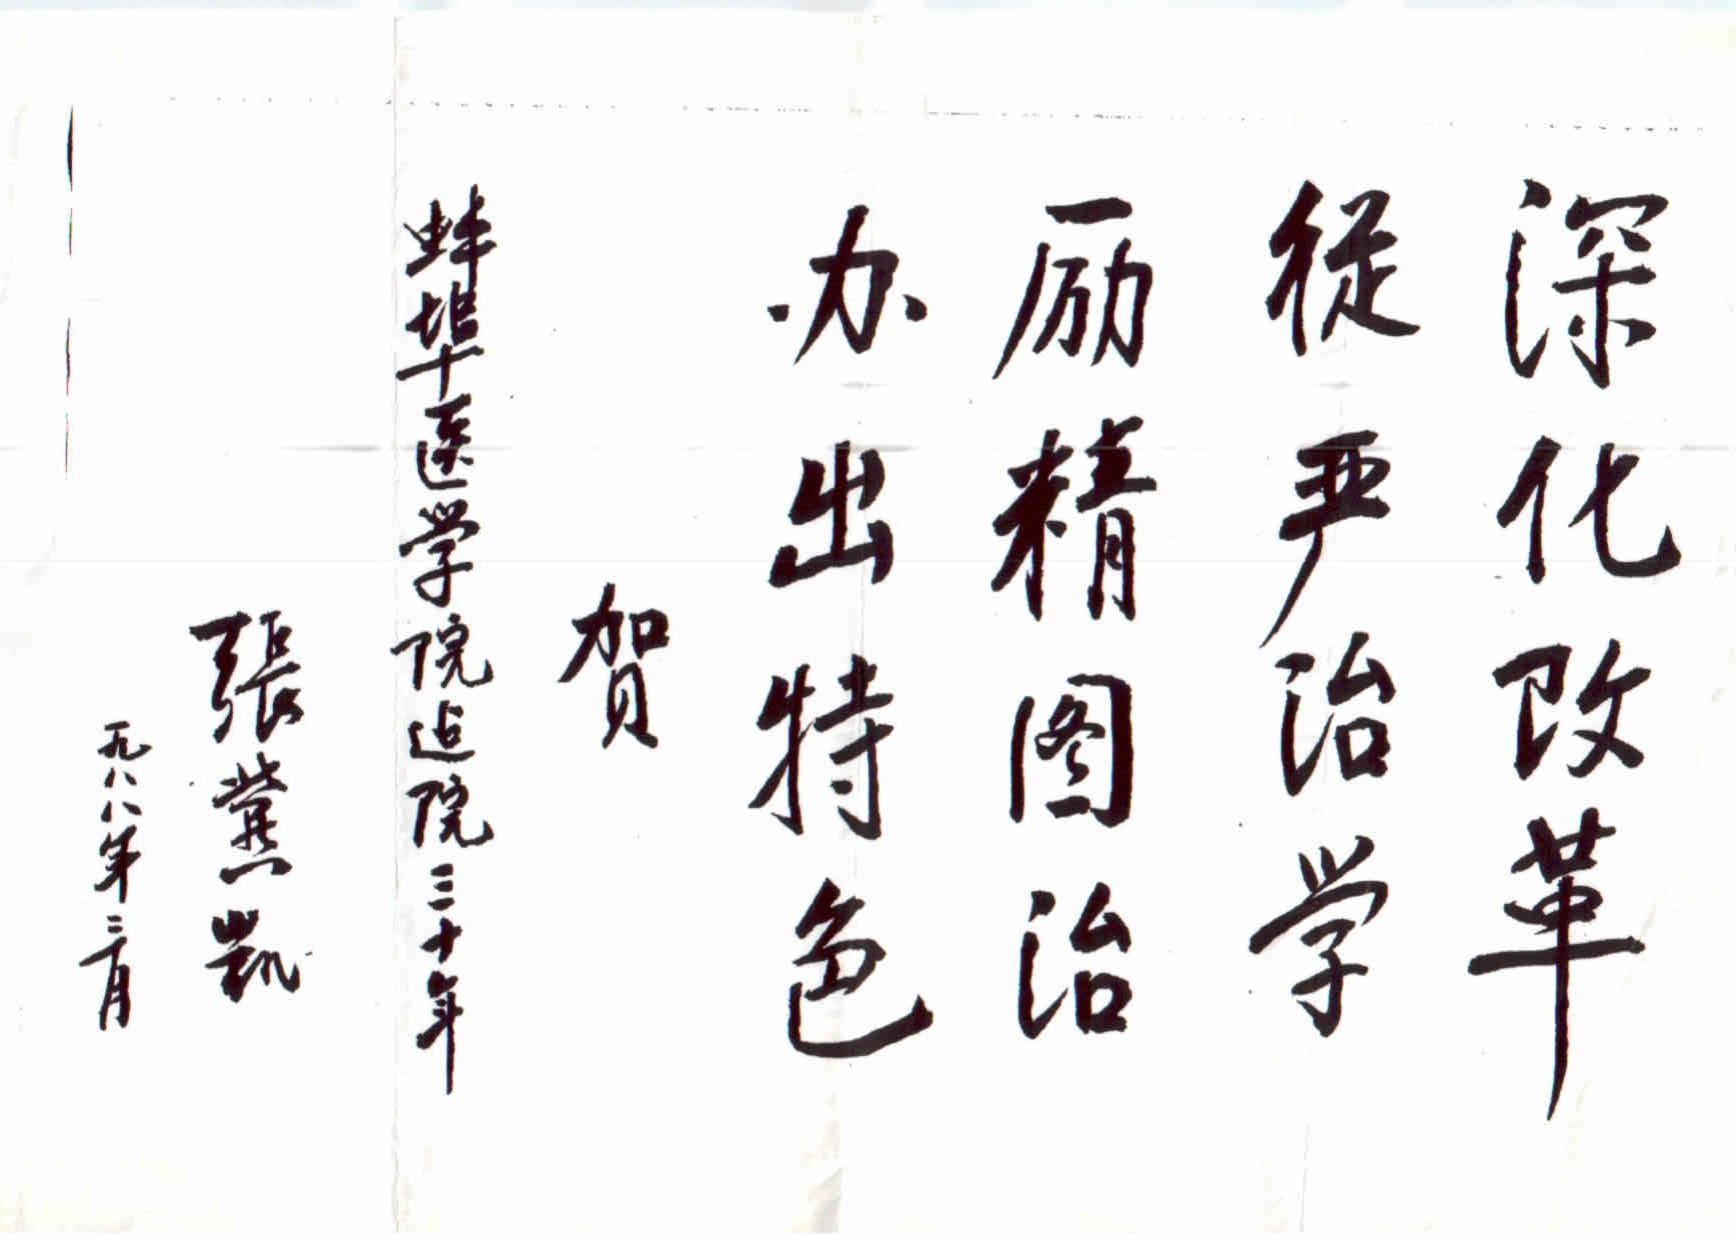 深化改革
從严治学
励精图治
办出特色
贺
蚌埠医学院迠院三十年
張凱
一九八八年三月